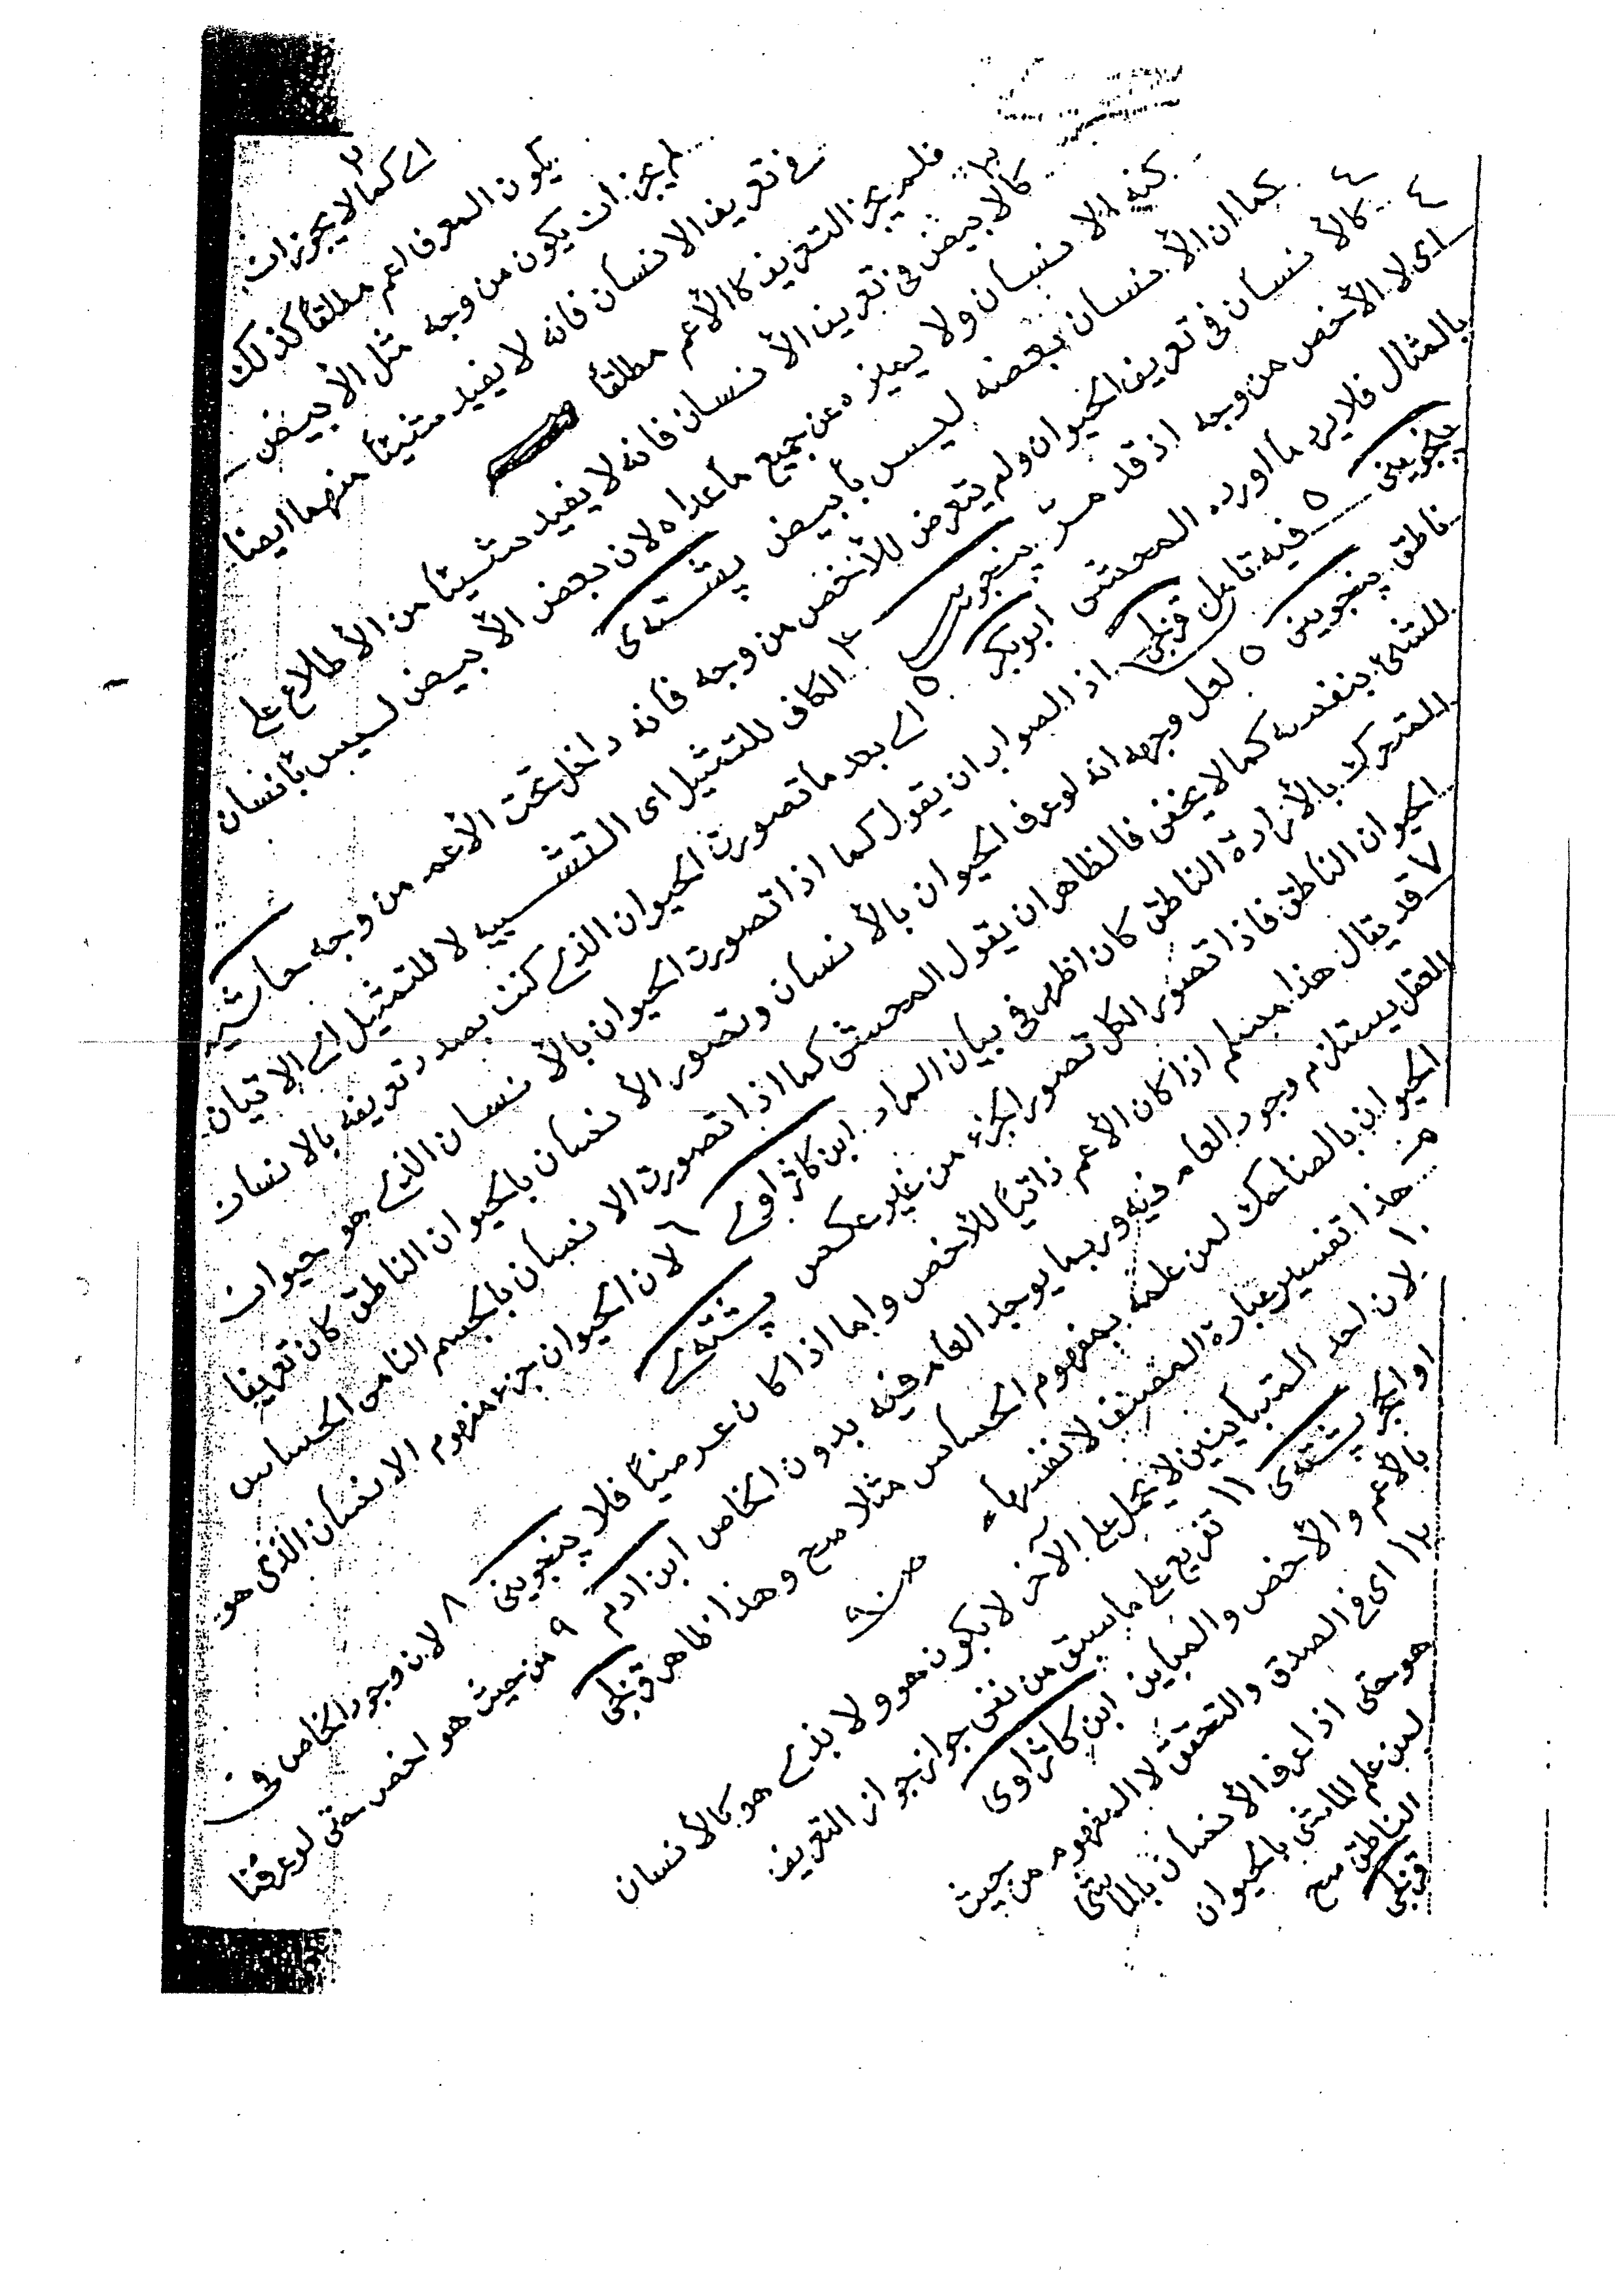 ٣ اے كما لا يجوز ان
يكون المعرف اعم مطلقاً كذلك
لم يجز ان يكون من وجه مثل الأبيض
فے تعريف الانسان فانه لا يفيد شيئاً منهما ايضا
فلم يجز التعريف كالأعم مطلقاً
كالابيض فى تعريف الأنسان فانه لا يفيد شيئا من الأطلاع على
بكنه الانسان ولا يميزه عن جميع ما عداه لان بعض الأبيض ليس بأنسان
كما ان الأنسان بعضه ليس بأبيض پشتەى
٤ كالأنسان فى تعريف الحيوان ولم يتعرض للأخص من وجه فانه داخل تحت الأعم من وجه حاشيه
٤ اى لا الأخص من وجه اذ قد مرّ پنجوينى الكاف للتمثيل اى التشبيه لا للتمثيل اے الاتيان
بالمثال فلا يرد ما اورده المحشى ابوبكر ٥ اے بعد ما تصورت الحيوان الذے كنت بصدد تعريفه بالانسان
پنجوينى ٥ فيه تامل قزلجى اذ الصواب ان يقول كما اذا تصورت الحيوان بالأنسان الذے هو حيوان
ناطق پنجوينى ٥ لعل وجهه انه لو عرف الحيوان بالأنسان وتصور الأنسان بالحيوان الناطق كان تعريفا
للشئ بنفسه كما لا يخفى فالظاهر ان يقول المحشى كما اذا تصورت الانسان بالجسم النامى الحساس
المتحرك بالأرادة الناطق كان اظهر فى بيان المراد ابن كاژاوے ٦ لان الحيوان جزء مفهوم الانسان الذى هو
الحيوان الناطق فاذا تصور الكل تصور الجزء من غير عكس پشتەے
٧ قد يقال هذا مسلم اذا كان الأعم ذاتيًا للأخص واما اذا كان عرضيًا فلا پنجوينى ٨ لان وجود الخاص فى
العقل يستلزم وجود العام فيه وربما يوجد العام فيه بدون الخاص ابن ادم ٩ من حيث هو اخص حتى لو عرفنا
الحيوان بالضاحك لمن علمه بمفهوم الحساس مثلا صح وهذا ظاهر قزلجى
هذا تفسير عبارة المصنف لا نفسها منه
١٠ لان احد المتباينين لا يحمل على الآخر لا يكون هو ولا بذے هو كالأنسان
او الحجر پشتەى ١١ تفريع على ما سبق من نفى جواز جواز التعريف
بالأعم والأخص والمباين ابن كاژاوى
١٢ اى فے الصدق والتحقق لا المفهوم من حيث
هو حتى اذا عرف الأنسان بالماشى
لمن علم الماشى بالحيوان
الناطق صح
قزلجى